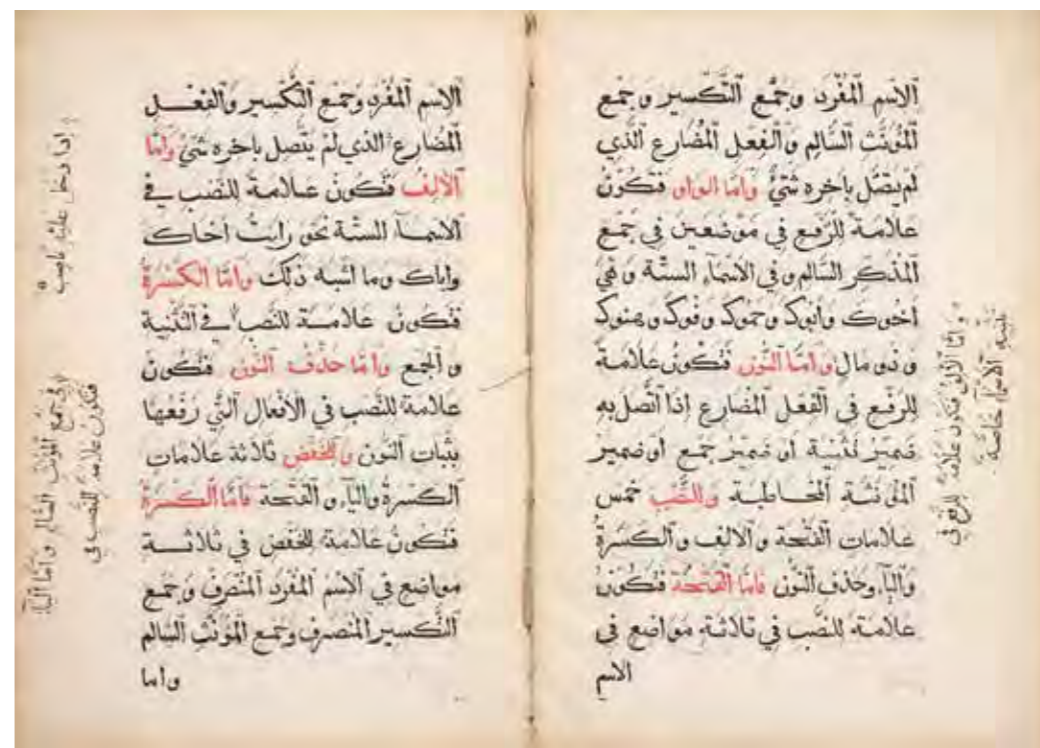 الاسم المفرد وجمع التكسير وجمع
المؤنث السالم والفعل المضارع الذي
لم يتصل باخره شئ واما الواو فتكون
علامة للرفع في موضعين في جمع
المذكر السالم وفي الاسماء الستة وهي
اخوك وأبوك وحموك وفوك وهنوك
وذو مال واما النون فتكون علامة
للرفع في الفعل المضارع إذا اتصل به
ضمير تثنية او ضمير جمع او ضمير
المؤنثة المخاطبة وللنصب خمس
علامات الفتحة والالف والكسرة
والياء وحذف النون فاما الفتحة فتكون
علامة للنصب في ثلاثة مواضع في
الاسم
واما الالف فتكون علامة للرفع في
تثنية الاسماء خاصة
الاسم المفرد وجمع التكسير والفعل
المضارع الذي لم يتصل باخره شئ واما
الالف فتكون علامة للنصب في
الاسماء الستة نحو رايت اخاك
واباك وما اشبه ذلك واما الكسرة
فتكون علامة للنصب في التثنية
والجمع واما حذف النون فتكون
علامة للنصب في الافعال التي رفعها
بثبات النون وللخفض ثلاثة علامات
الكسرة والياء والفتحة فاما الكسرة
فتكون علامة للخفض في ثلاثة
مواضع في الاسم المفرد المنصرف وجمع
التكسير المنصرف وجمع المؤنث السالم
واما
إذا دخل عليه ناصب
في جمع المؤنث السالم واما الياء
فتكون علامة للنصب في